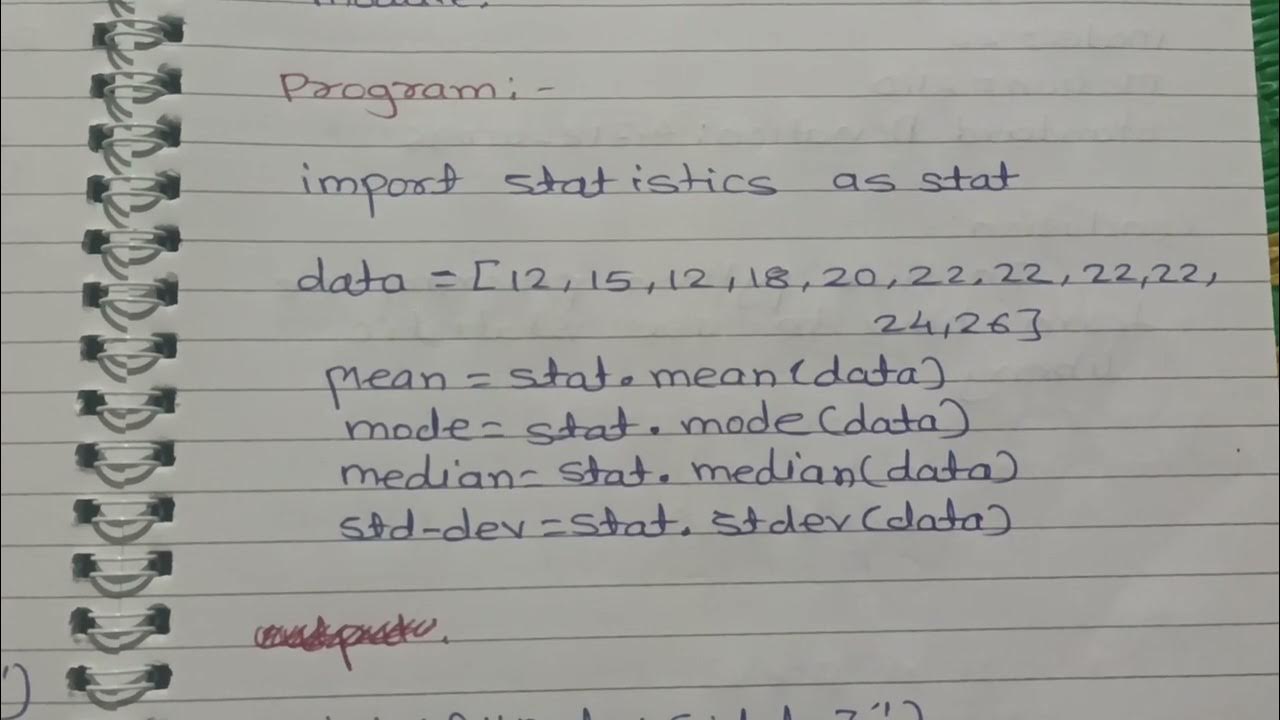 Program:-
import statistics as stat
data = [12, 15, 12, 18, 20, 22, 22, 22, 22,
24, 26]
mean = stat.mean(data)
mode = stat.mode(data)
median = stat.median(data)
std-dev = stat.stdev(data)